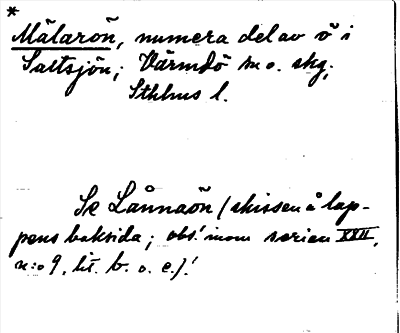 *
Mälarön, numera del av ö i
Saltsjön; Värmdö sn o. skg;
Sthlms l.
Se Lännaön (skissen å lap-
pens baksida; obs! inom serien XXII,
n:o 9, lit. b. o. e.)!